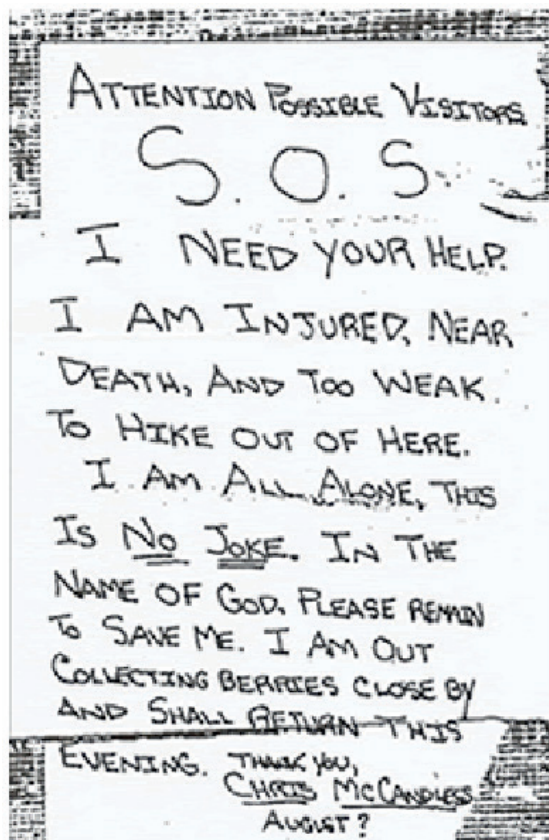 ATTENTION POSSIBLE VISITORS
S.O.S.
I NEED YOUR HELP.
I AM INJURED, NEAR
DEATH, AND TOO WEAK
TO HIKE OUT OF HERE.
I AM ALL ALONE, THIS
IS NO JOKE. IN THE
NAME OF GOD, PLEASE REMAIN
TO SAVE ME. I AM OUT
COLLECTING BERRIES CLOSE BY
AND SHALL RETURN THIS
EVENING. THANK YOU,
CHRIS McCANDLESS
AUGUST ?